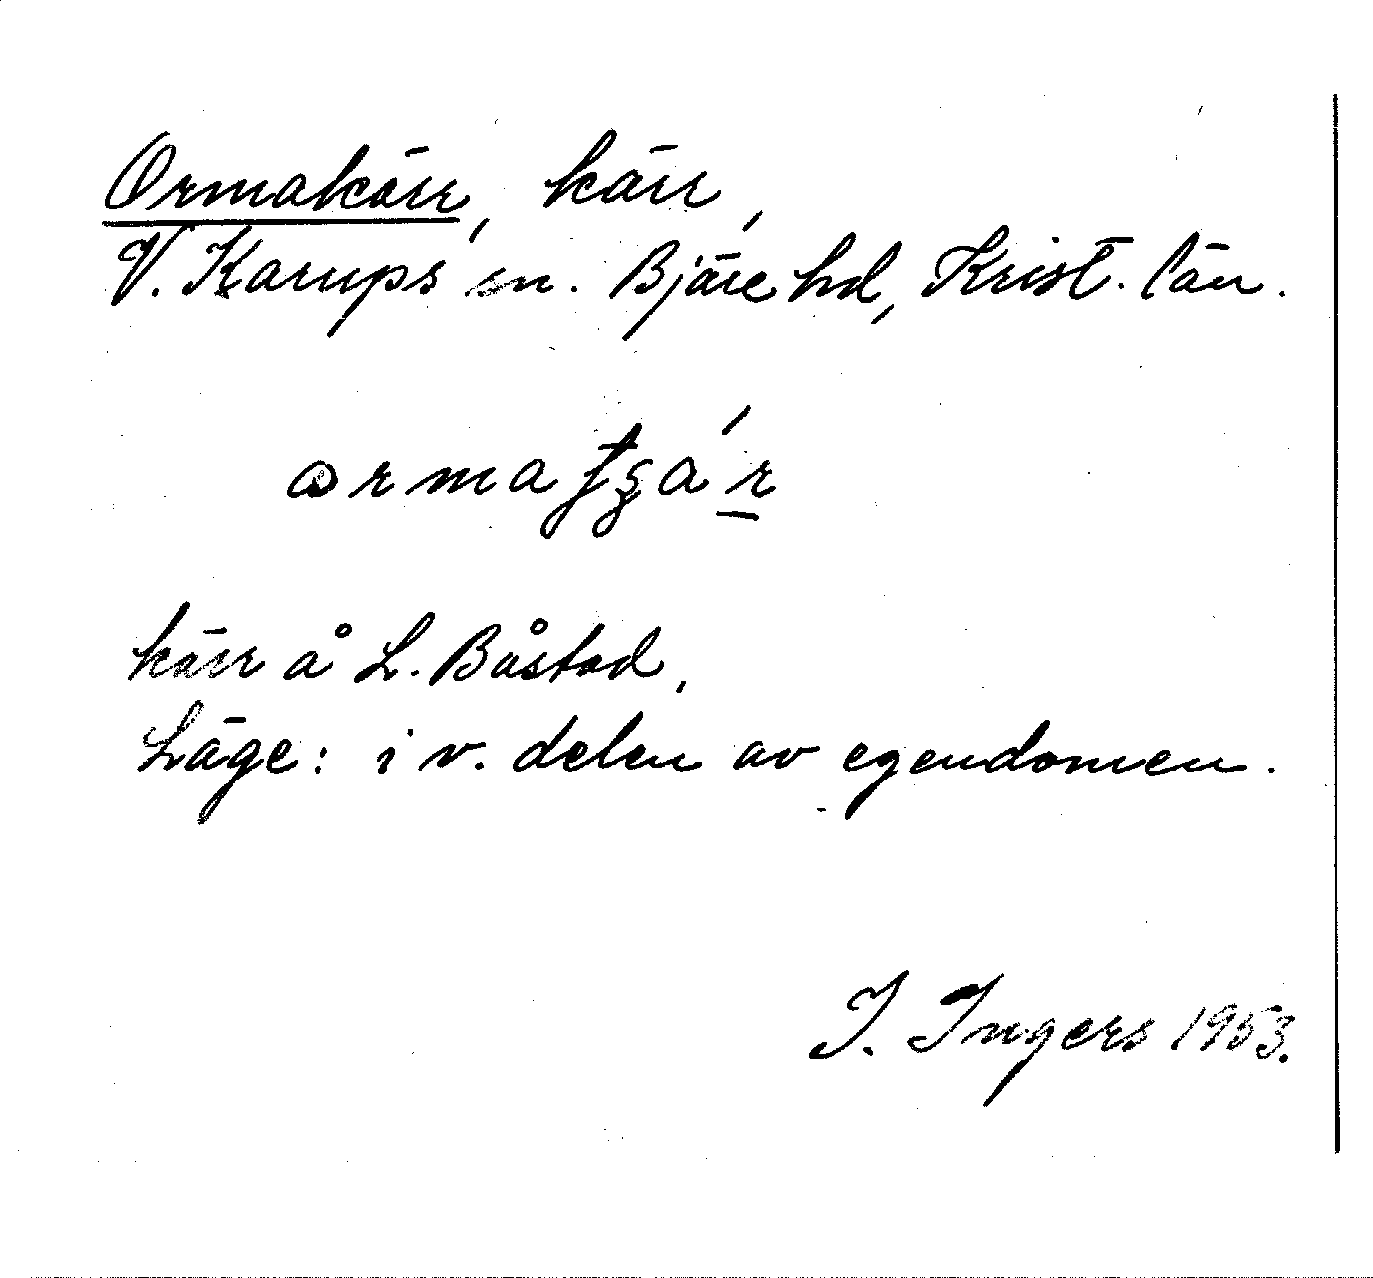 Ormakärr, kärr,
V. Karups sn. Bjäre hd, Krist. län.
kärr å L. Båstad,
Läge: i v. delen av egendomen.
I. Ingers 1953.